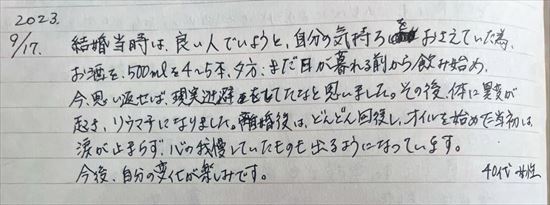 2023.
9/17. 結婚当時は、良い人でいようと、自分の気持ちをおさえていた為、
お酒を、500mlを4~5本、夕方、まだ日が暮れる前から飲み始め、
今、思い返せば、現実逃避をしてたなと思いました。その後、体に異変が
起き、リウマチになりました。離婚後は、どんどん回復し、オイルを始めた当初は、
涙が止まらず、心の我慢していたものも出るようになっています。
今後、自分の変化が楽しみです。
40代 女性